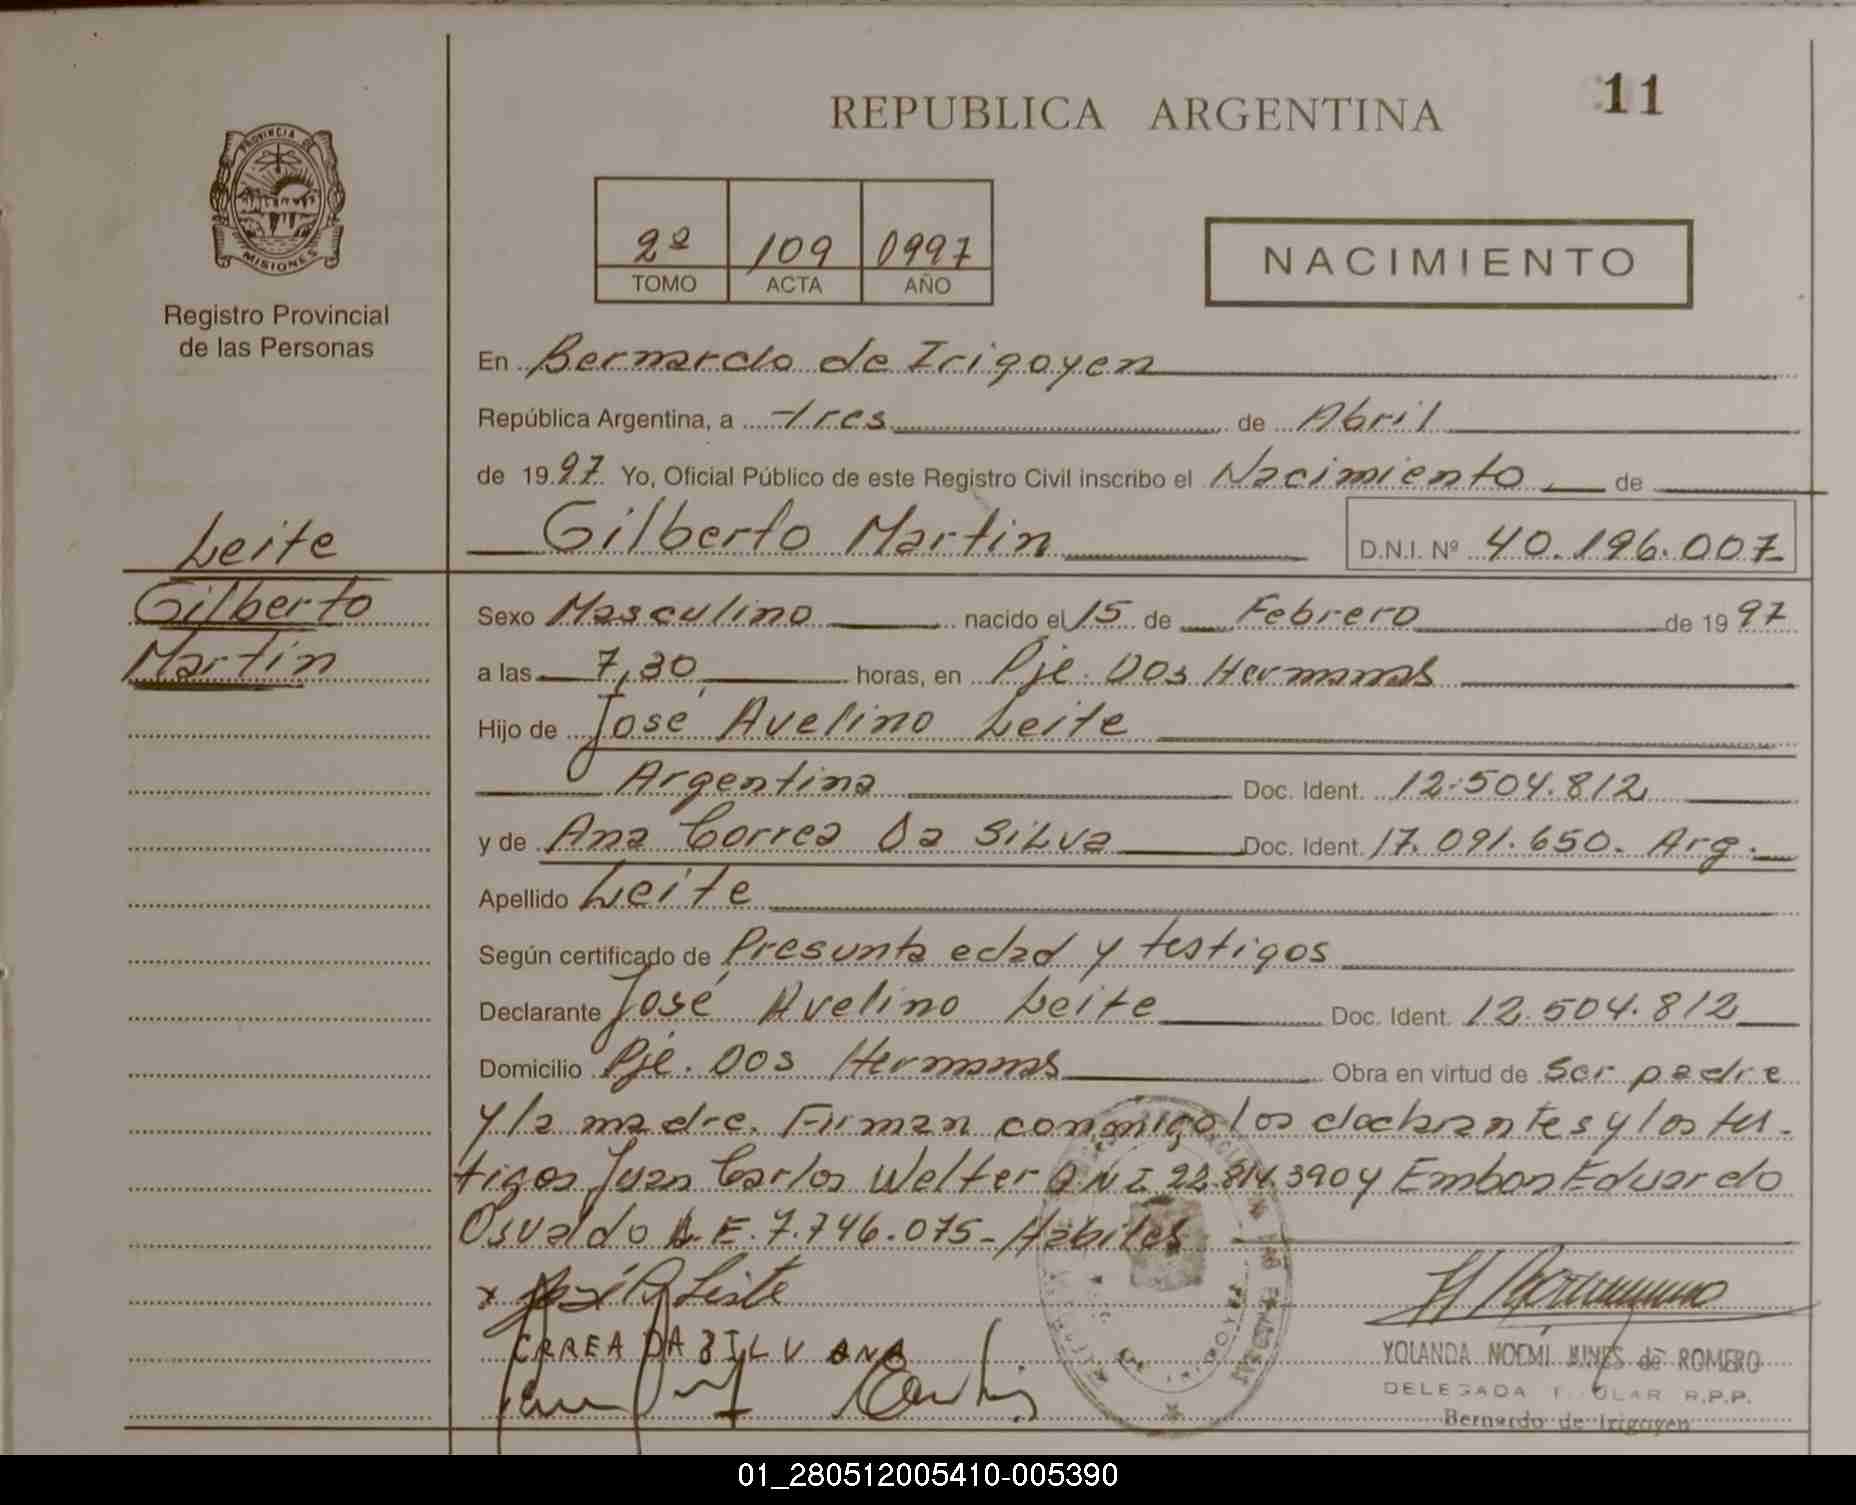 REPUBLICA ARGENTINA
11
PROVINCIA DE
MISIONES
Registro Provincial
de las Personas
2º 109 0997
TOMO ACTA AÑO
NACIMIENTO
En Bernardo de Irigoyen
República Argentina, a tres de Abril
de 1997 Yo, Oficial Público de este Registro Civil inscribo el Nacimiento de
Gilberto Martin D.N.I. Nº 40.196.007
Leite
Gilberto
Martin
Sexo Masculino nacido el 15 de Febrero de 1997
a las 7,30 horas, en Pje. Dos Hermanas
Hijo de José Avelino Leite
Argentina Doc. Ident. 12.504.812
y de Ana Correa Da Silva Doc. Ident. 17.091.650. Arg.
Apellido Leite
Según certificado de Presunta edad y testigos
Declarante José Avelino Leite Doc. Ident. 12.504.812
Domicilio Pje. Dos Hermanas Obra en virtud de Ser padre
y la madre. Firman conmigo los declarantes y los tes-
tigos Juan Carlos Welter D.N.I 22.814.390 y Embon Eduardo
Osvaldo L.E. 7.746.075- Habiles
x José A Leite
CRREA DA SILV ANA
YOLANDA NOEMI de ROMERO
DELEGADA R.P.P.
Bernardo de Irigoyen
01_280512005410-005390